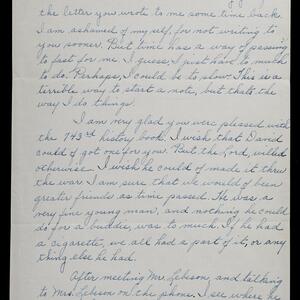 the letter you wrote to me some time back.
I am ashamed of my self, for not writing to
you sooner. But time has a way of passing
to fast for me. I guess, I just have to much
to do. Perhaps, I could be to slow. This is a
terrible way to start a note, but thats the
way I do things.
I am very glad you were pleased with
the 743rd history book. I wish that David
could of got one for you. But the Lord, willed
otherwise. I wish he could of made it thru
the war. I am sure that we would of been
greater friends as time passed. He was a
very fine young man, and nothing he could
do for a buddie, was to much. If he had
a cigarette, we all had a part of it, or any
thing else he had.
After meeting Mr. Lebeson, and talking
to Mrs. Lebeson on the phone. I see where he